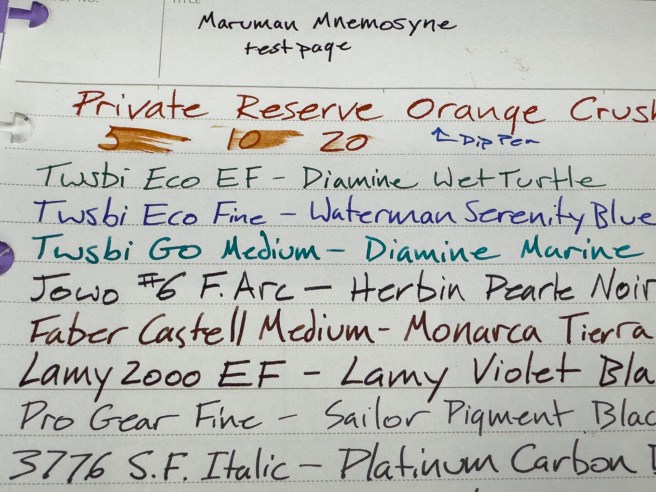 Maruman Mnemosyne
test page
Private Reserve Orange Crush
5 10 20 ↖Dip Pen
Twsbi Eco EF - Diamine Wet Turtle
Twsbi Eco Fine - Waterman Serenity Blue
Twsbi Go Medium - Diamine Marine
Jowo #6 F. Arc - Herbin Pearle Noir
Faber Castell Medium - Monarca Tierra
Lamy 2000 EF - Lamy Violet Bla
Pro Gear Fine - Sailor Pigment Blac
3776 S.F. Italic - Platinum Carbon